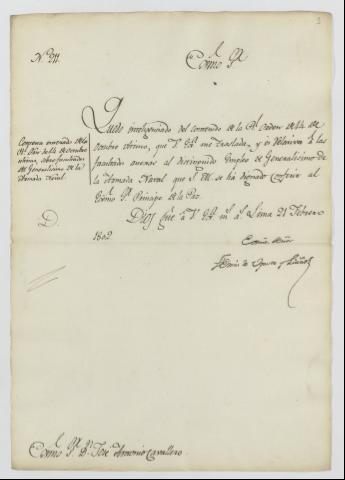 3
Nº 211.
Exmo. Sr.
Quedo inteligenciado del contenido de la Rl. Orden de 14 de
Octubre ultimo, que V. E. me traslada, y es relativa à las
anexas al distinguido Empleo de Generalisimo de
la Armada Naval que S. M. se ha dignado conferir al
Exmo. Sr. Principe de la Paz.
Dios gue. à V. E. ms. as. Lima 21 Febrero
1802
Contexta enterado de la
Rl. Orn. de 14 de Octubre
ultimo, sobre
del Generalisimo de la
Armada Naval.
D.
Exmo. Señor
Exmo. Sr. Dn. José Antonio Cavallero.